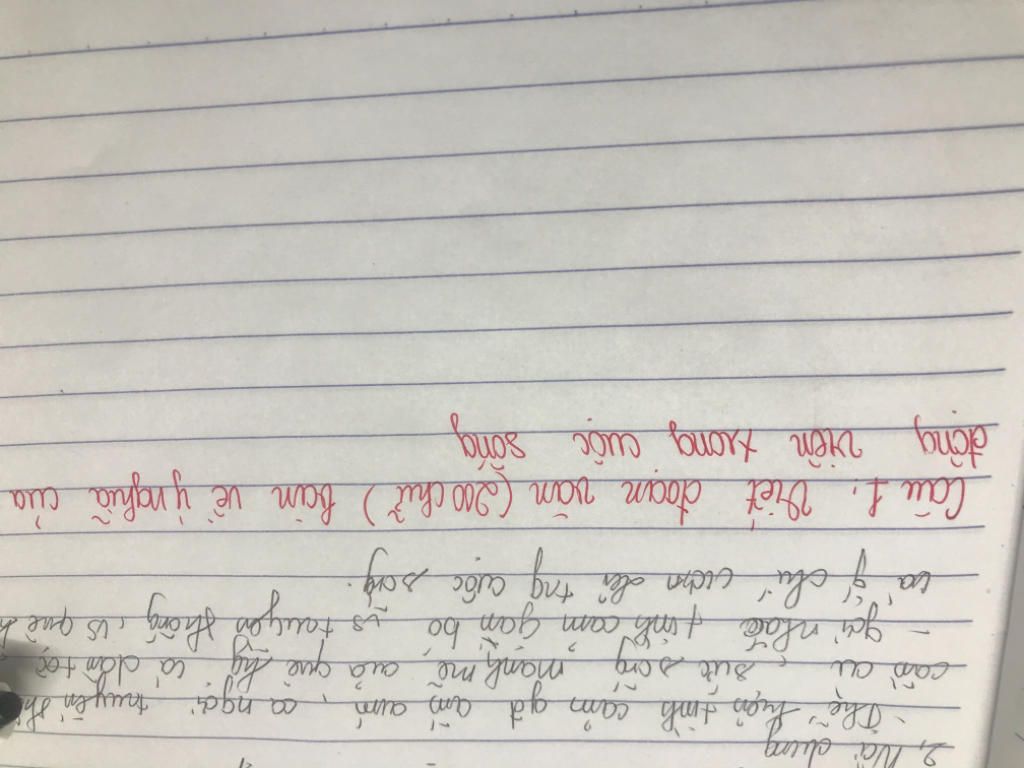 2, Nội dung
- Thể hiện tình cảm gđ ấm cúm, ca ngợi truyền
cần cù, sức sống mãnh mẽ của quê hg và dân tộc
- gợi nhắc tình cảm gắn bó vs truyền thống, vs quê
và ý chí vươn lên trg cuộc sống.
Câu 1. Viết đoạn văn (200 chữ) bàn về ý nghĩa của
động viên trong cuộc sống